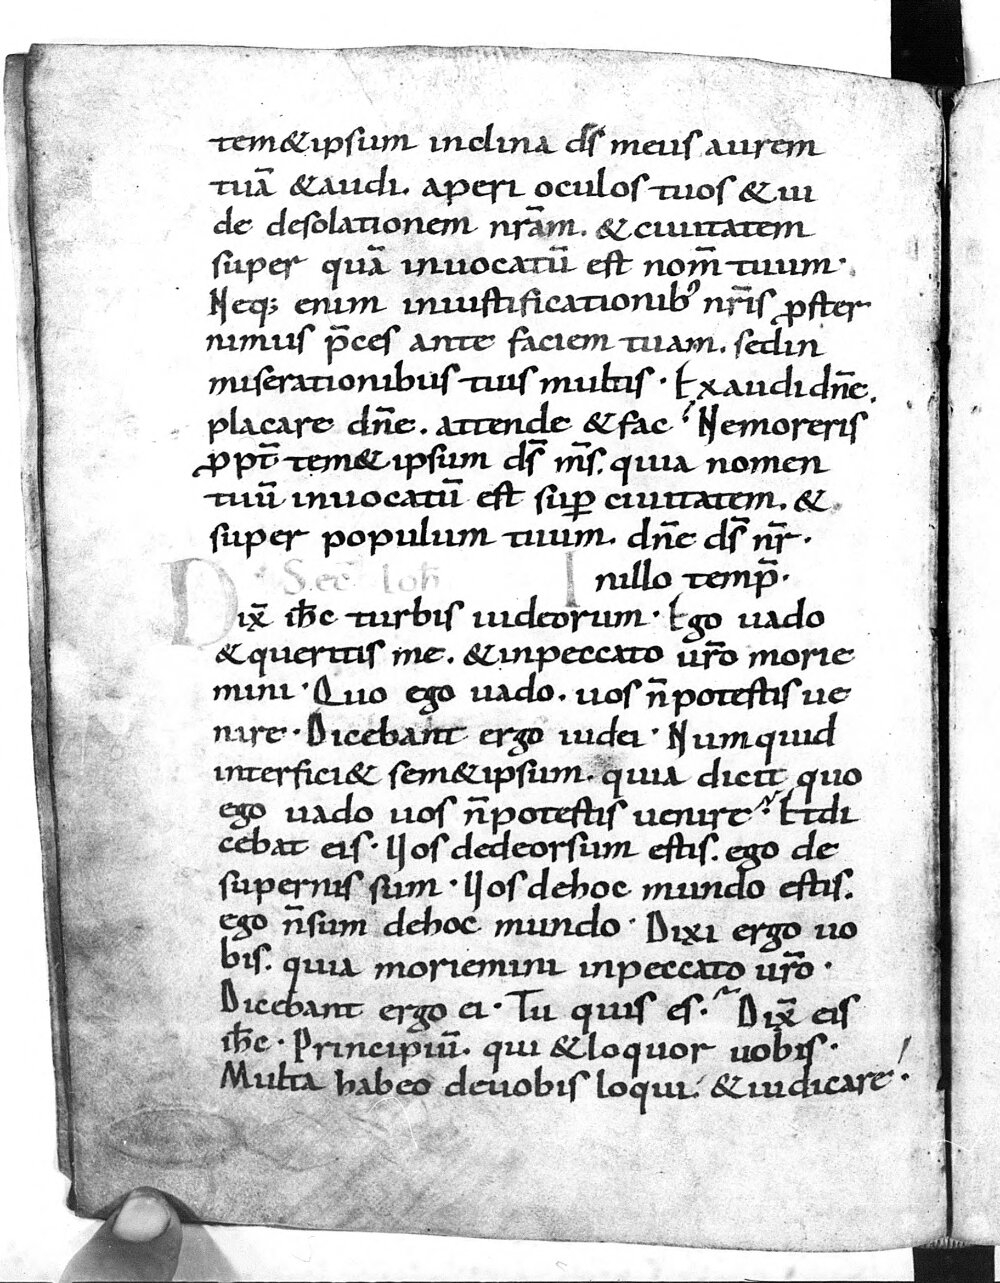 tem&ipsum inclina d̄s meus aurem
tuā &audi. aperi oculos tuos &ui
de desolationem nrām. &ciuitatem
super quā inuocatū est nom̄ tuum.
Neq; enim iniustificationib' nr̄is ꝓster
nimus p̄ces ante faciem tuam. sedin
miserationibus tuis multis. Exaudi dn̄e.
placare dn̄e. attende &fac. Nemoreris
ꝓpt̄ tem&ipsum d̄s m̄s. quia nomen
tuū inuocatū est suꝑ ciuitatem. &
super populum tuum. dn̄e d̄s nr̄.
Sec̄ Ioh̄ In illo temp̄.
Dix̄ ih̄c turbis iudeorum. Ego uado
&queritis me. &inpeccato ur̄o morie
mini. Quo ego uado. uos n̄potestis ue
nire. Dicebant ergo iudei. Numquid
interfici& sem&ipsum. quia dicit quo
ego uado uos n̄potestis uenire? Etdi
cebat eis. Uos dedeorsum estis. ego de
supernis sum. Uos dehoc mundo estis.
ego n̄sum dehoc mundo. Dixi ergo uo
bis. quia moriemini inpeccato ur̄o.
Dicebant ergo ei. Tu quis es? Dix̄ eis
ih̄c. Principiū. qui &loquor uobis.
Multa habeo deuobis loqui. &iudicare.